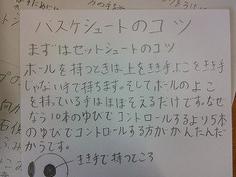 バスケシュートのコツ
まずはセットシュートのコツ
ボールを持つときは、上をきき手よこをきき手
じゃない手で持ちます。そしてボールのよこ
を持っている手はほぼそえるだけです。なぜ
なら10本のゆびでコントロールするより5本
のゆびでコントロールする方がかんたんだ
からです。
きき手で持つところ